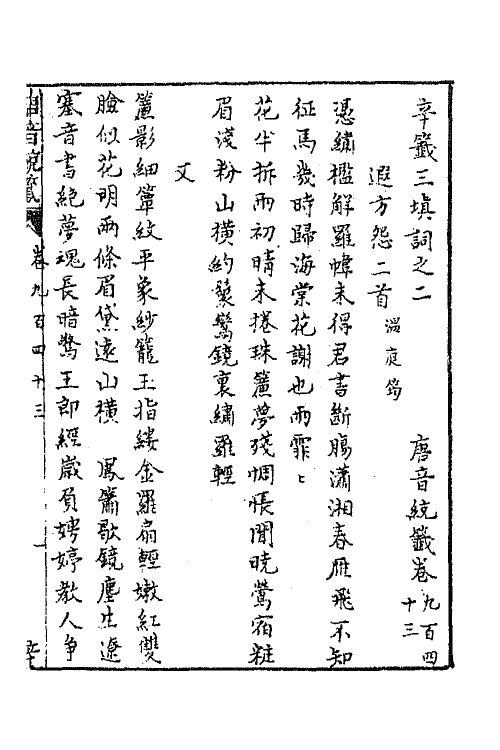 辛籤三填詞之二 唐音統籤卷九百四十三
遐方怨二首 溫庭筠
憑繡檻解羅幃未得君書斷腸瀟湘春雁飛不知
征馬幾時歸海棠花謝也雨霏〻
花半拆雨初晴未捲珠簾夢殘惆悵聞曉鶯宿粧
眉淺粉山橫約鬟鸞鏡裏繡羅輕
又
簾影細簟紋平象紗籠玉指縷金羅扇輕嫩紅雙
臉似花明兩條眉黛遠山橫 鳳簫歇鏡塵生遼
塞音書絕夢魂長暗驚王郎經歲負娉婷教人争
唐音統籤 卷九百四十三 一